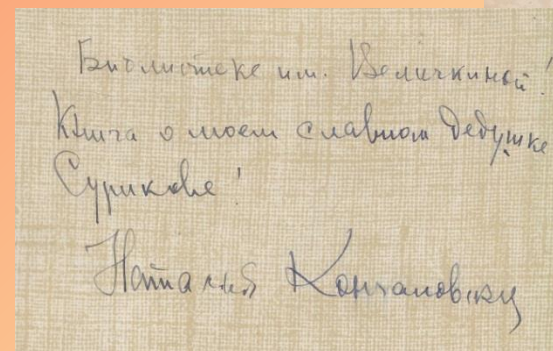 Библиотеке им. Величкиной!
Книга о моем славном дедушке
Сурикове!
Наталья Кончаловская